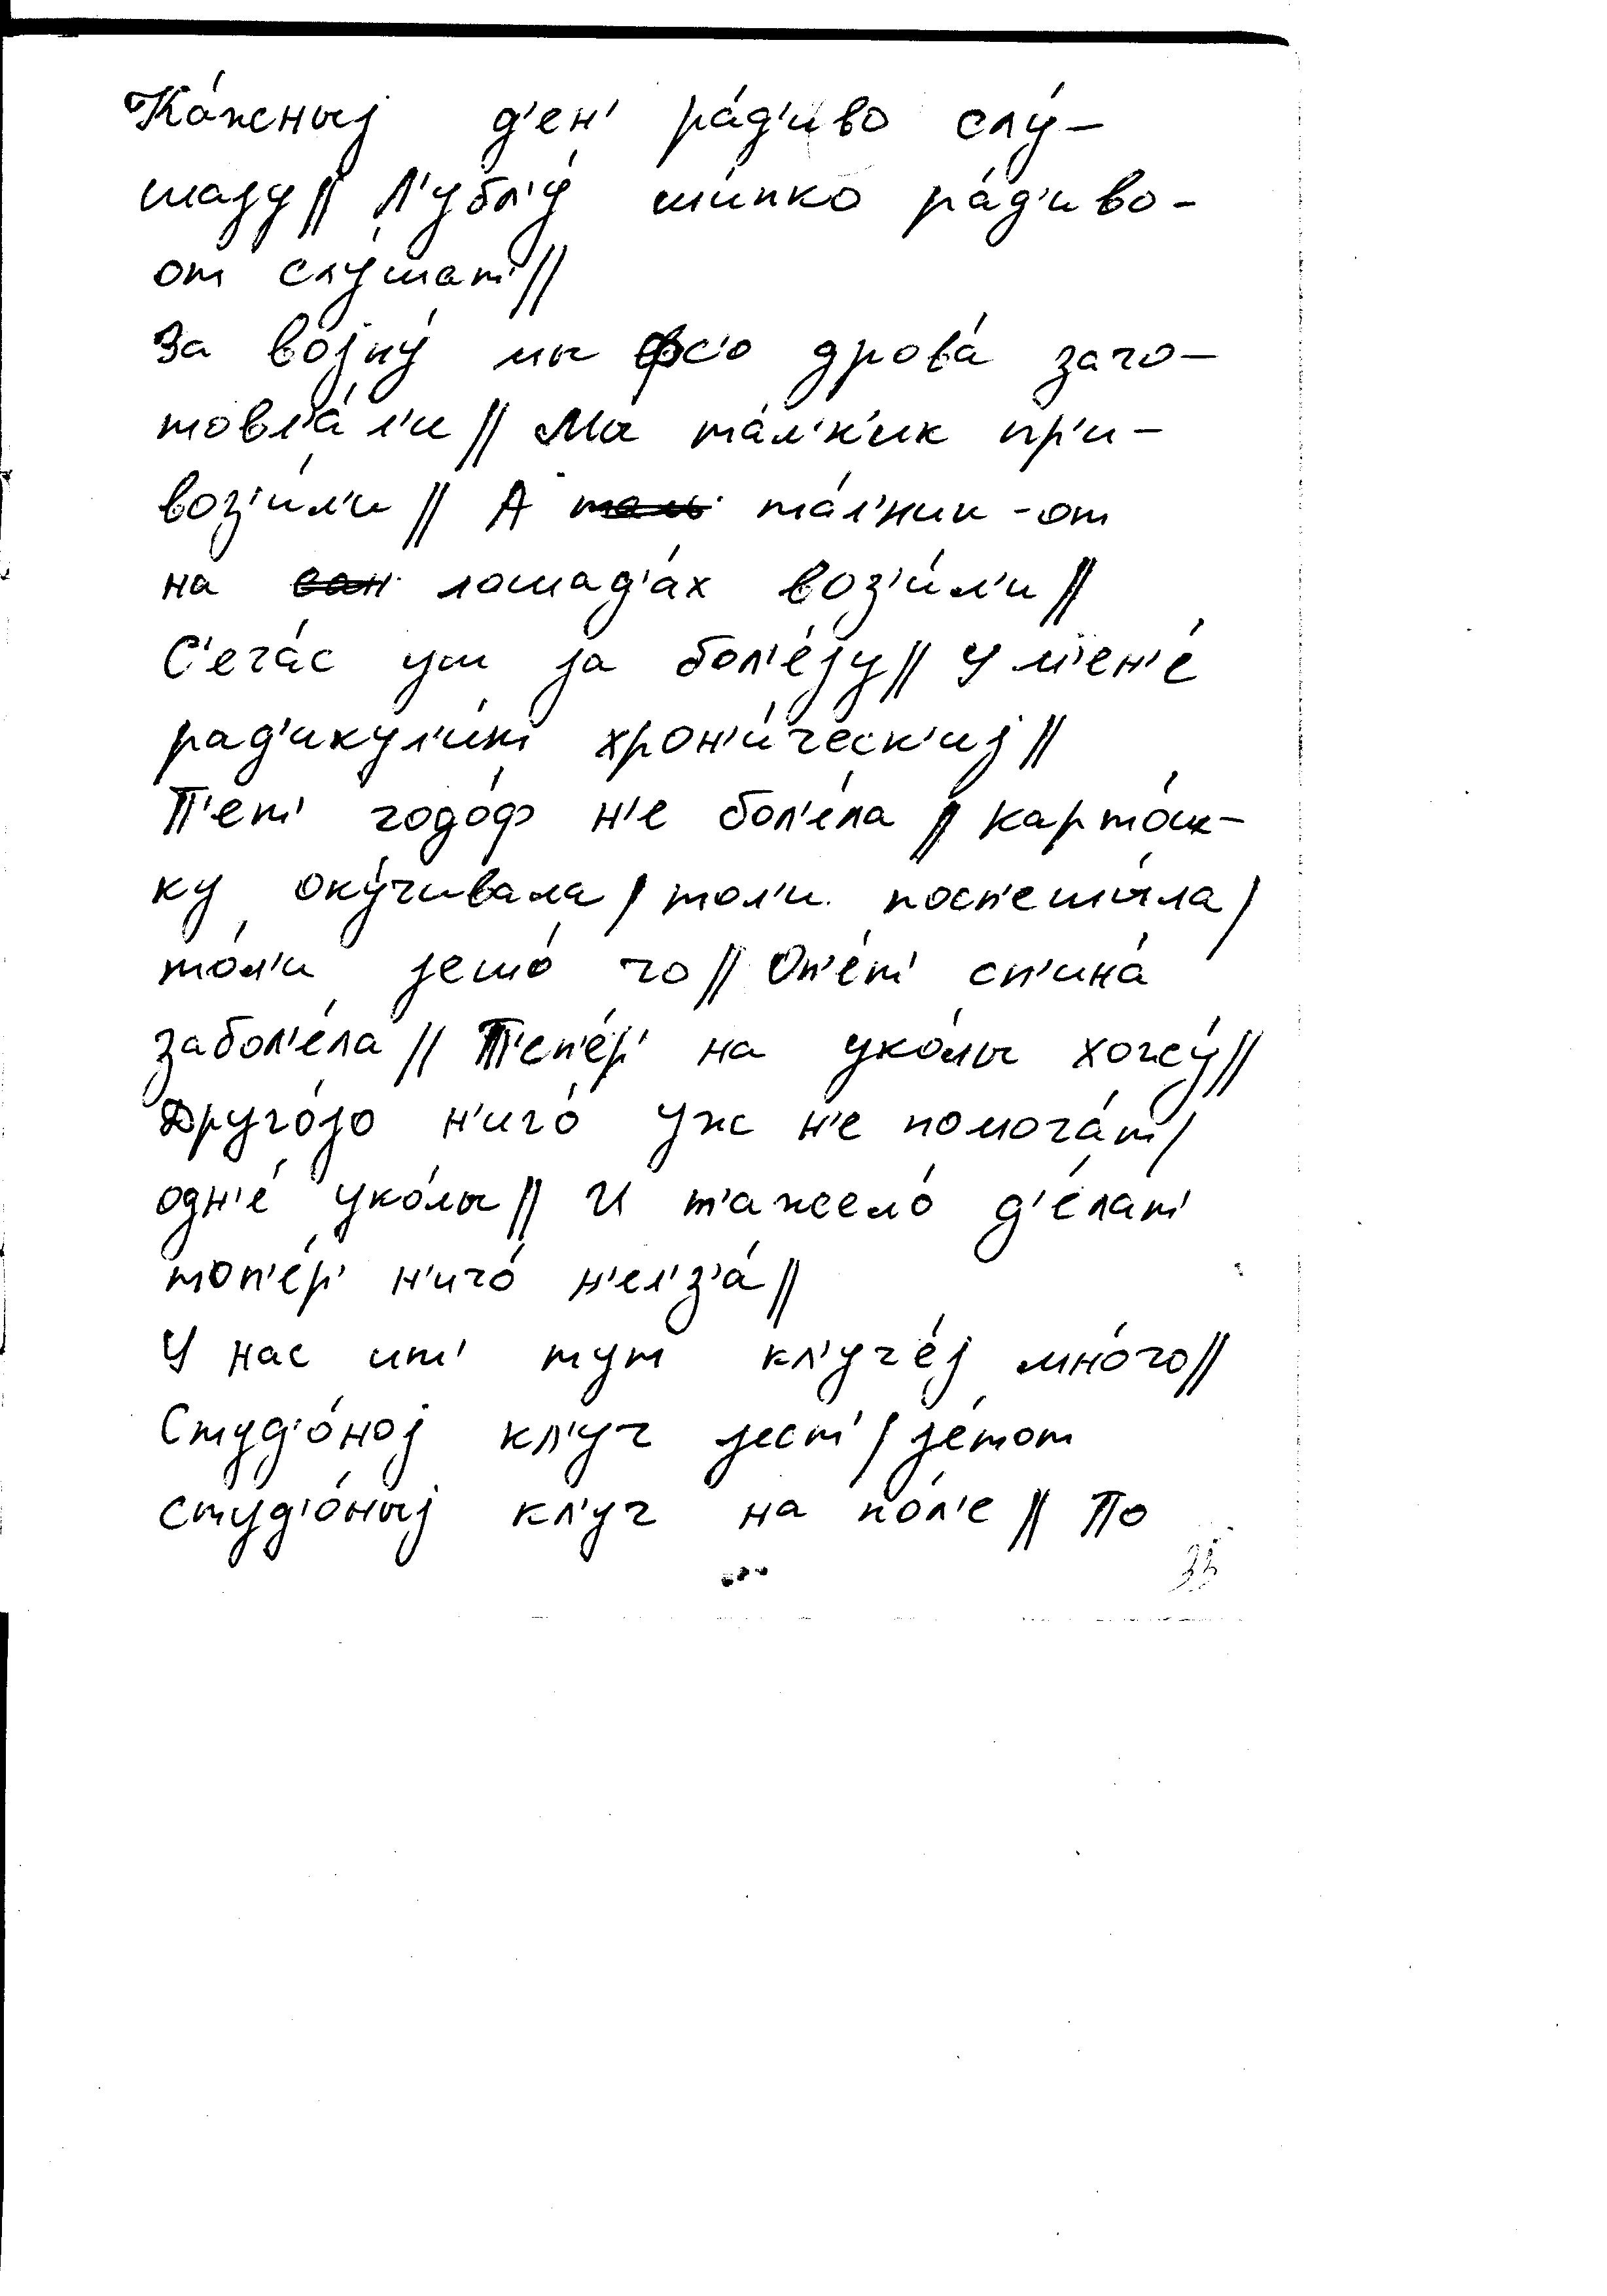 Ка́жныj д'ен' ра́д'иво слу́-
шаjу // Л'убл'у́ ши́пко ра́д'иво-
от слу́шат' //
За воjну́ мы фс'о дрова́ заго-
товл'а́л'и // Мы та́л'н'ик пр'и-
воз'и́л'и // А та́л'ник-от
на лошад'а́х воз'и́л'и //
С'еча́с уш jа бол'е́jу // У м'ен'е́
рад'икул'и́т хрон'и́ческ'иj //
П'ет' годо́ф н'е бол'е́ла // карто́ш-
ку оку́чивала / тол'и посп'еши́ла /
то́л'и jешо́ чо // Оп'е́т' сп'ина́
забол'е́ла // Т'еп'е́р' на уко́лы хожу́ //
Друго́jо н'ичо́ уж н'е помога́т /
одн'е́ уко́лы // И т'ажело́ д'е́лат'
топ'е́р' н'ичо́ н'ел'з'а́ //
У нас ит' тут кл'уче́j мно́го //
Студ'о́ноj кл'уч jест' / jе́тот
студ'о́ныj кл'уч на по́л'е // По
35